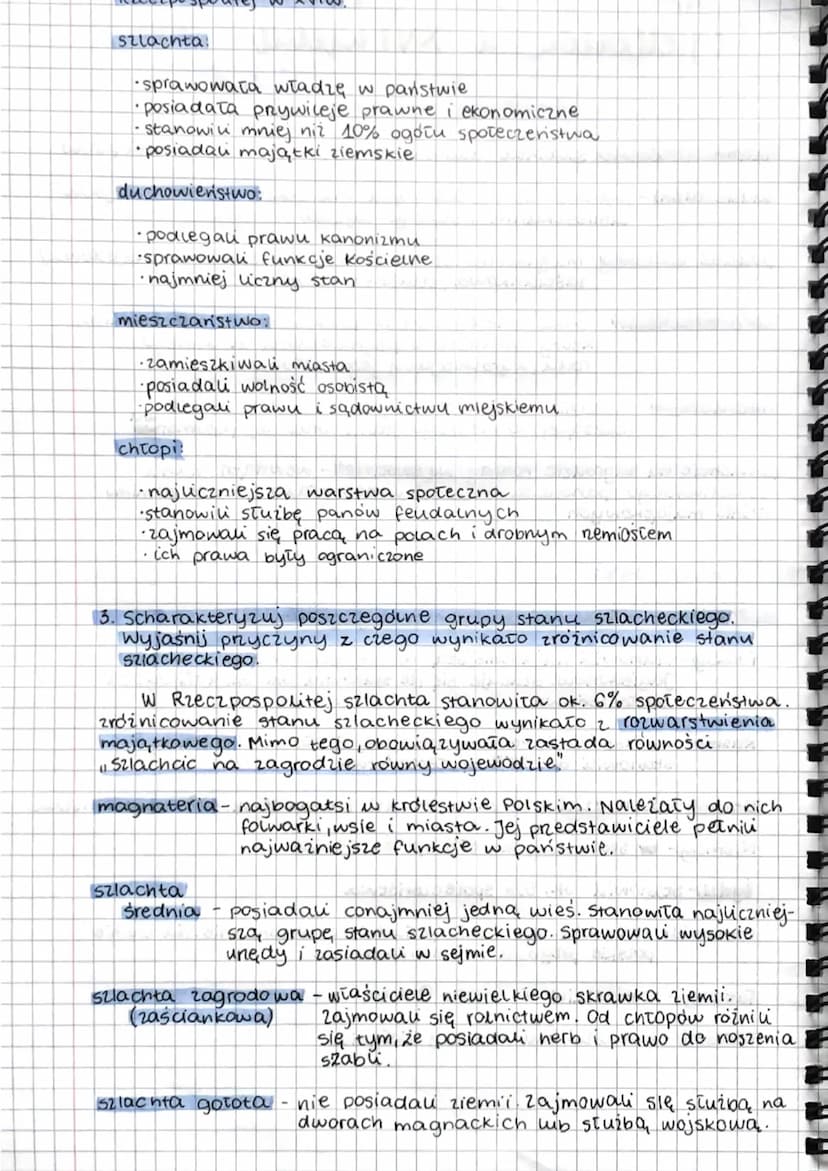 Rzeczpospolitej w XVI w.
szlachta:
· sprawowała władzę w państwie
· posiadała przywileje prawne i ekonomiczne
· stanowili mniej niż 10% ogółu społeczeństwa
· posiadali majątki ziemskie
duchowieństwo:
· podlegali prawu kanonizmu
· sprawowali funkcje kościelne
· najmniej liczny stan
mieszczaństwo:
· zamieszkiwali miasta
· posiadali wolność osobistą
· podlegali prawu i sądownictwu miejskiemu
chłopi:
· najliczniejsza warstwa społeczna
· stanowili służbę panów feudalnych
· zajmowali się pracą na polach i drobnym rzemiosłem
· ich prawa były ograniczone
3. Scharakteryzuj poszczególne grupy stanu szlacheckiego.
Wyjaśnij przyczyny z czego wynikało zróżnicowanie stanu
szlacheckiego.
W Rzeczpospolitej szlachta stanowiła ok. 6% społeczeństwa.
zróżnicowanie stanu szlacheckiego wynikało z rozwarstwienia
majątkowego. Mimo tego, obowiązywała zastada równości
„Szlachcic na zagrodzie równy wojewodzie"
magnateria - najbogatsi w królestwie Polskim. Należały do nich
folwarki, wsie i miasta. Jej przedstawiciele pełnili
najważniejsze funkcje w państwie.
szlachta
średnia - posiadali conajmniej jedną wieś. Stanowiła najliczniej-
szą grupę stanu szlacheckiego. Sprawowali wysokie
urzędy i zasiadali w sejmie.
szlachta zagrodowa - właściciele niewielkiego skrawka ziemii.
(zaściankowa) zajmowali się rolnictwem. Od chłopów różnili
się tym, że posiadali herb i prawo do noszenia
szabli.
szlachta gołota - nie posiadali ziemii. Zajmowali się służbą na
dworach magnackich lub służbą wojskową.